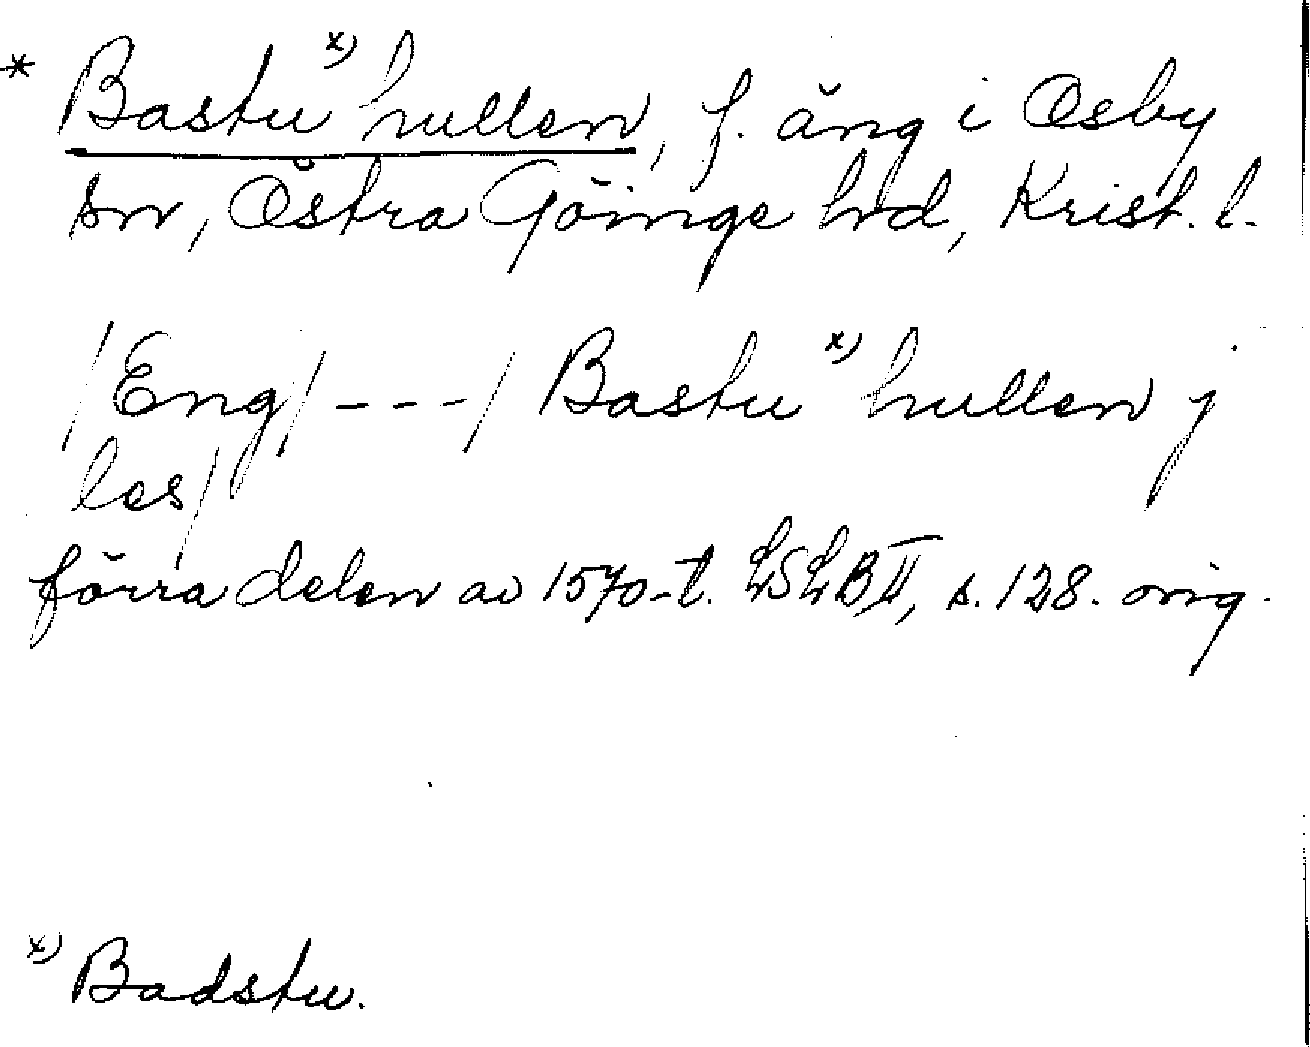 * Bastu x) hullen, f. äng i Osby
sn, Östra Göinge hd, Krist. l.
/Eng/ --- / Bastu x) hullen j
les/
förra delen av 1570-t. LSLB II, s. 128. orig.
x) Badstu.